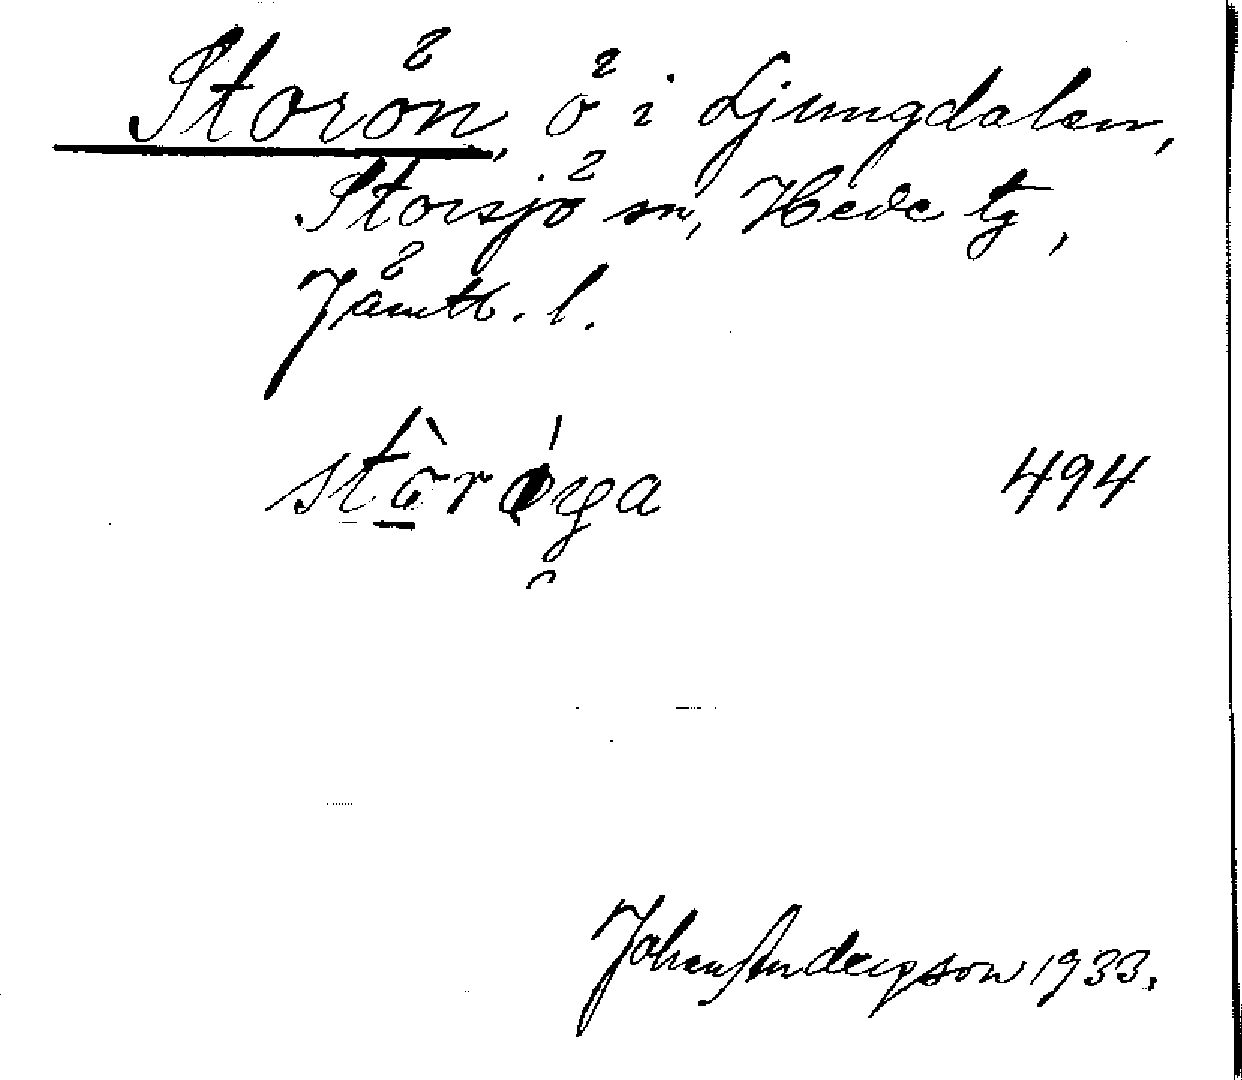 Storön, ö i Ljungdalen,
Storsjö sn, Hede tg,
Jämtl. l.
stòrǿya 494
Johan Anderzson 1933.